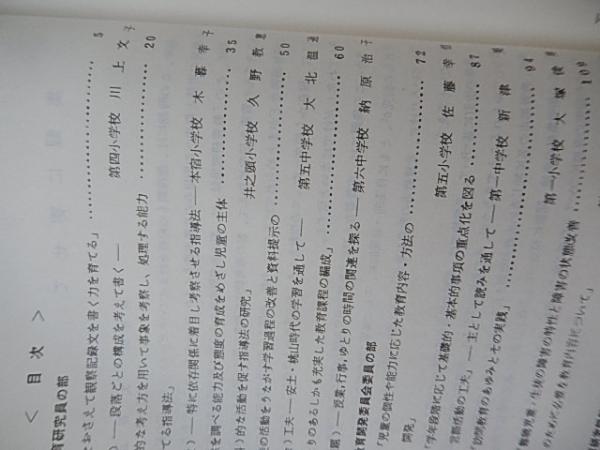 ＜ 目 次 ＞
育研究員の部
をおさえて観察記録文を書く力を育てる」 5
）――段落ごとの構成を考えて書く―― 第四小学校 川 上 文 子
的な考え方を用いて事象を考察し、処理する能力 20
てる指導法」
）――特に依存関係に着目し考察させる指導法――本宿小学校 木 暮 幸
を調べる能力及び態度の育成をめざし児童の主体 35
的な活動を促す指導法の研究」 井之頭小学校 久 野 教
の活動をうながす学習過程の改善と資料提示の 50
）工夫――安土・桃山時代の学習を通して―― 第五中学校 大 北 温
りのあるしかも充実した教育課程の編成」 60
――授業,行事,ゆとりの時間の関連を探る――第六中学校 納 原 治 子
育開発委員会委員の部
「児童の個性や能力に応じた教育内容・方法の 72
開発」 第五小学校 佐 藤 幸
「学年段階に応じて基礎的・基本的事項の重点化を図る 87
言語活動の工夫」――主として読みを通して――第一中学校 新 津
「訪問教育のあゆみとその実践」 94
児童/生徒の障害の特性と障害の状態改善 109
のために必要な教育内容について」 第一小学校 大 塚